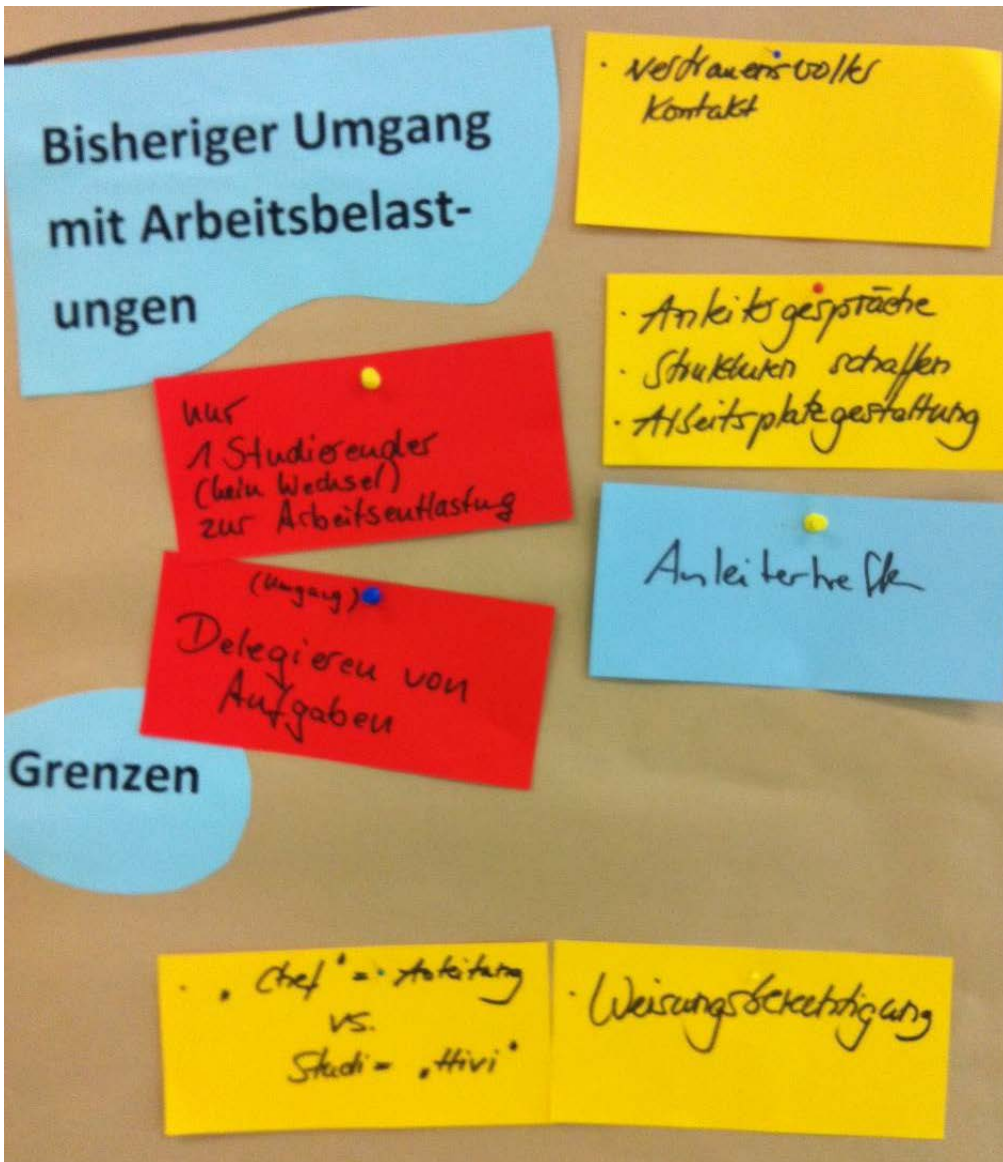 Bisheriger Umgang
mit Arbeitsbelast-
ungen
· vertrauensvoller
Kontakt
· Anleitsgespräche
· Strukturen schaffen
· Arbeitsplatzgestaltung
nur
1 Studierender
(kein Wechsel)
zur Arbeitsentlastung
Anleitertreffen
(Umgang)
Delegieren von
Aufgaben
Grenzen
· „Chef“ = Anleitung
vs.
Studi = „Hivi“
· Weisungsberechtigung